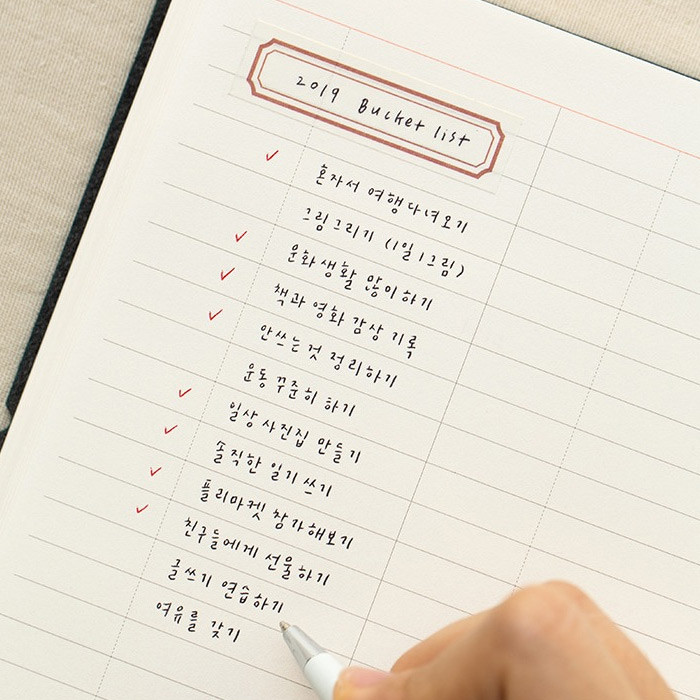 2019 Bucket list
혼자서 여행다녀오기
그림그리기 (1일 1그림)
문화생활 많이하기
책과 영화 감상 기록
안쓰는것 정리하기
운동 꾸준히 하기
일상 사진집 만들기
솔직한 일기 쓰기
플리마켓 참가해보기
친구들에게 선물하기
글쓰기 연습하기
여유를 갖기